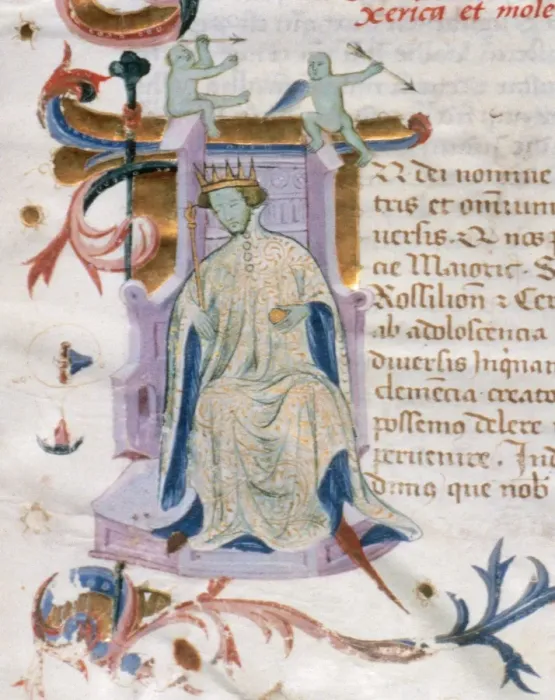 Xerica et mole
dei nomine
tris et omnium
uersis. Et nos
cie Maioric. S
Rossilion & Cer
ab adoloscencia
diuersis Inqnan
clemēcia creato
possemo delere
peruenire. Ind
dimq que nob